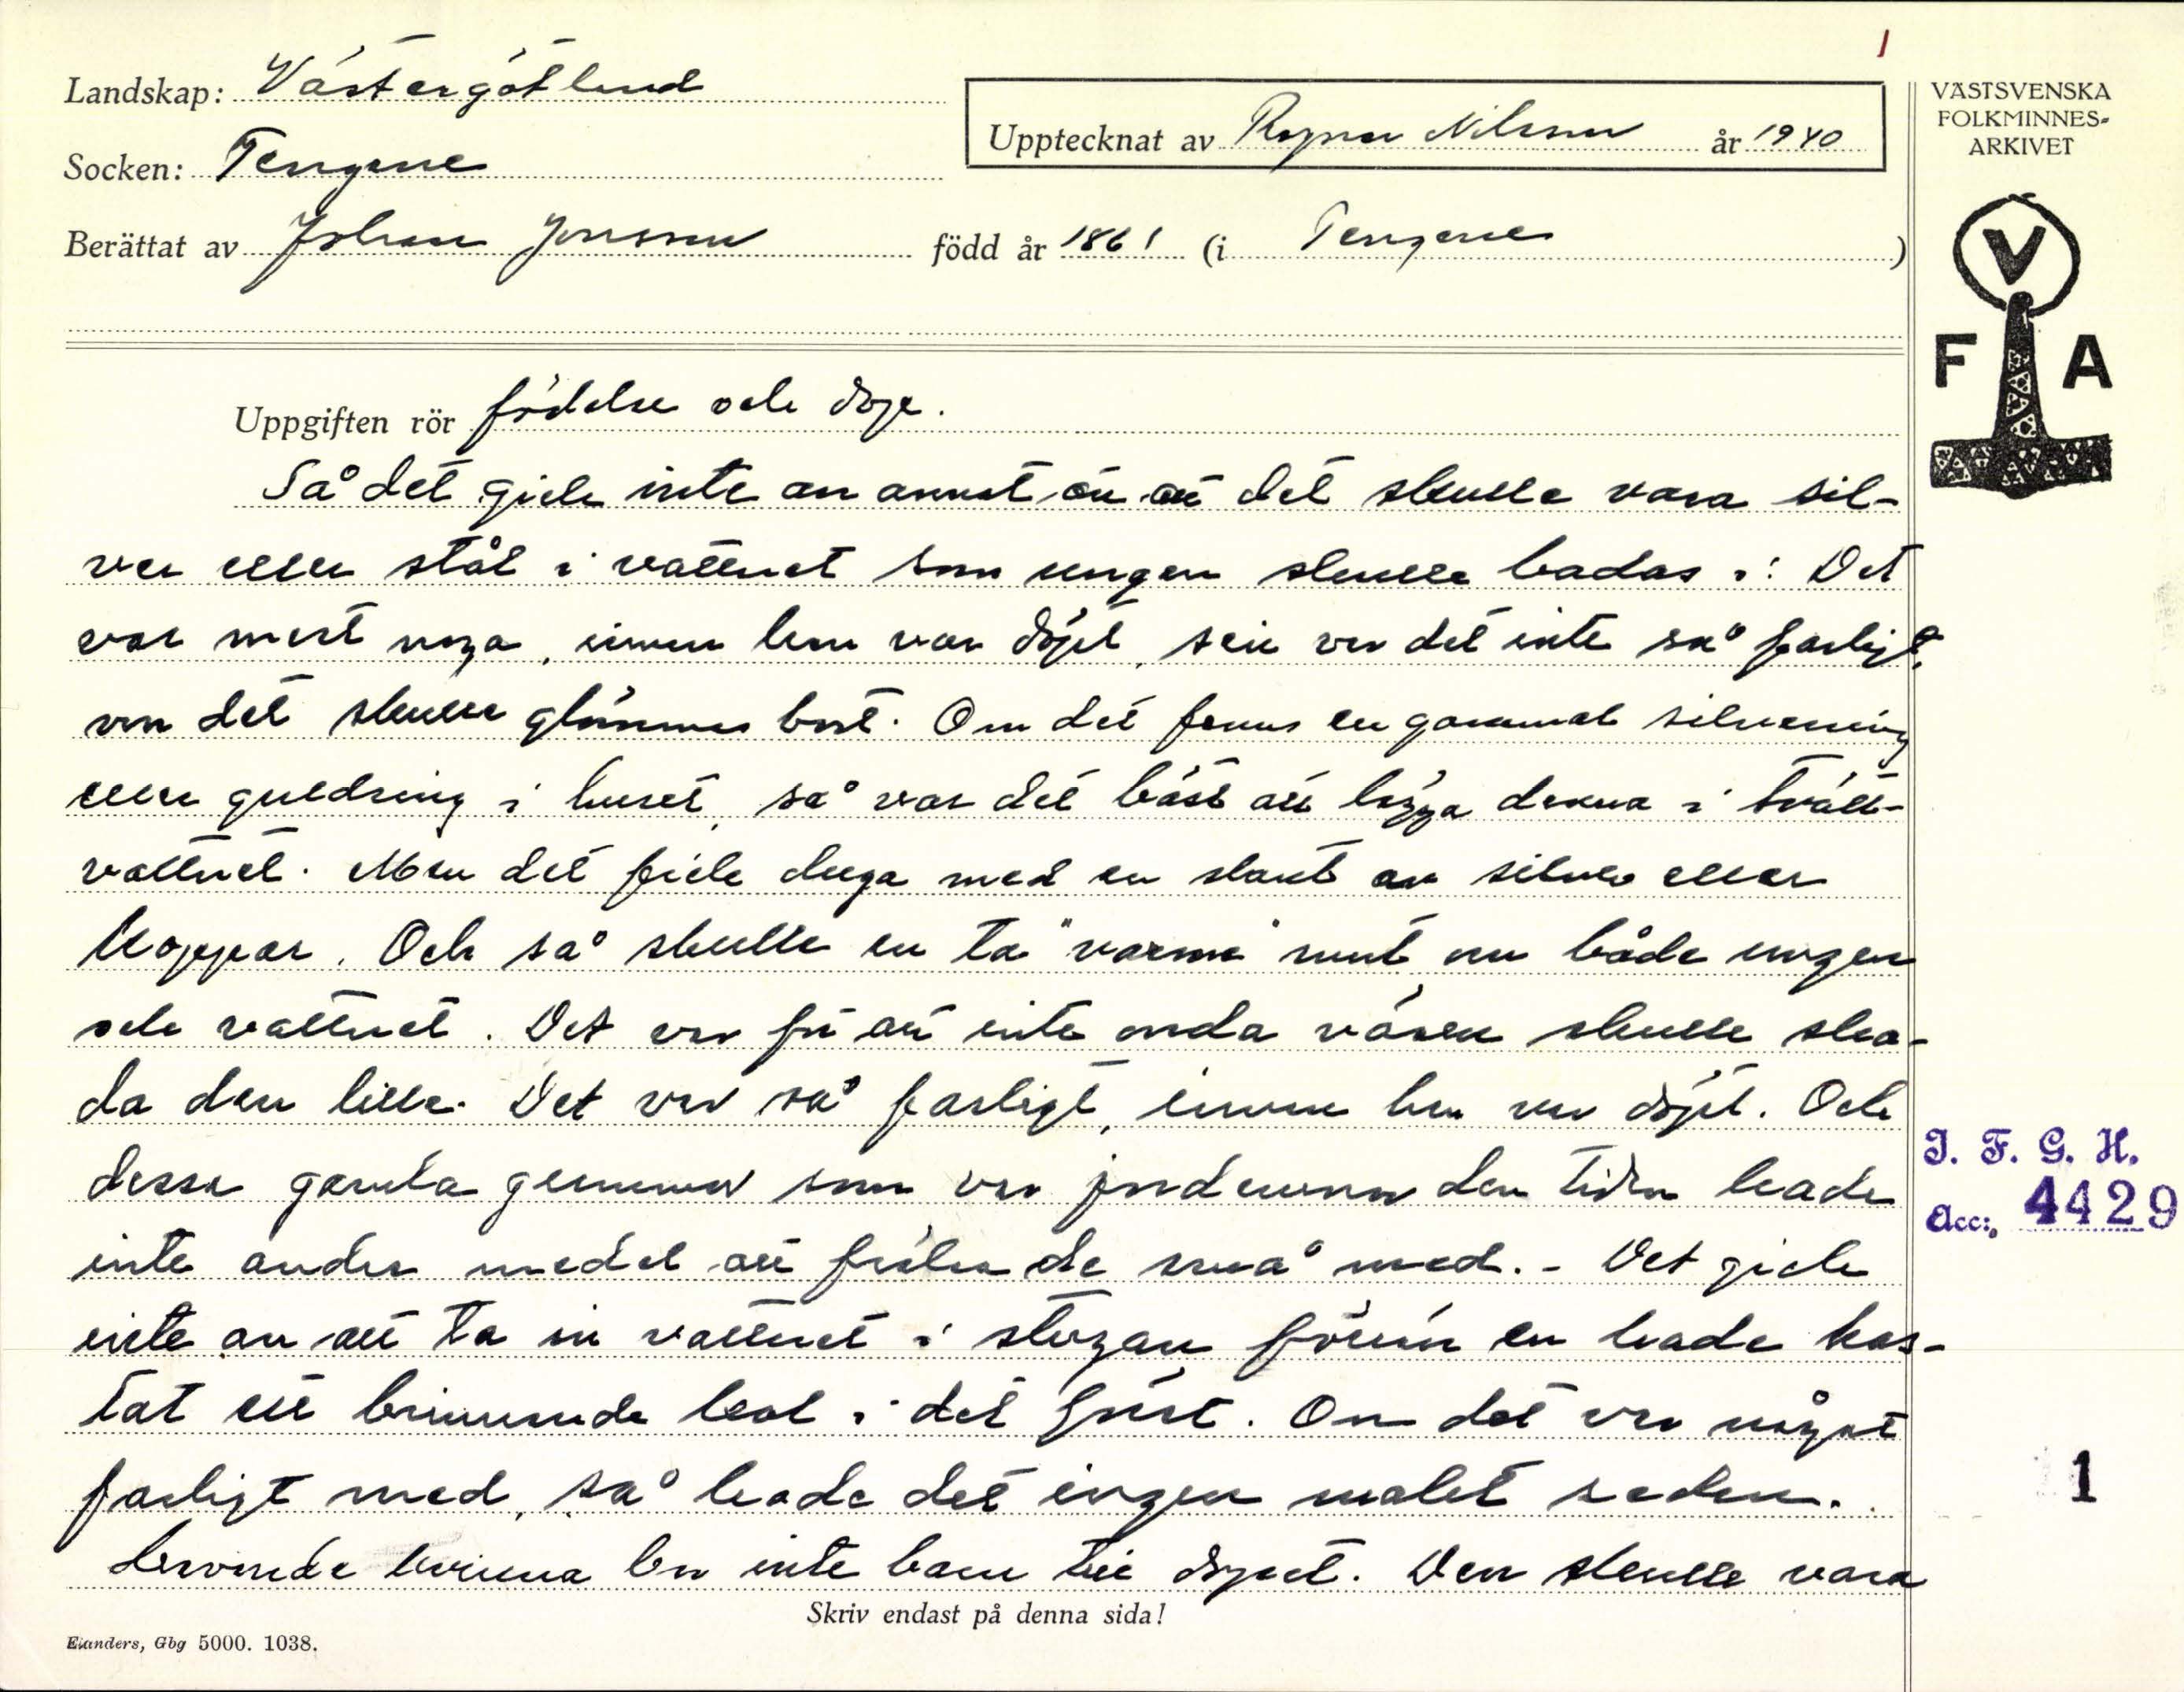 1
Landskap: Västergötland
Socken: Tengene
Upptecknat av Ragnar Nilsson år 1940
Berättat av Johan Jonsson född år 1861 (i Tengene)
VÄSTSVENSKA
FOLKMINNES-
ARKIVET
V
F A
Uppgiften rör födelse och dop.
Så det gick inte an annat än att det skulle vara sil-
ver eller stål i vattnet som ungen skulle badas i. Det
var mest noga, innan han var döpt, sen var det inte så farligt,
om det skulle glömmas bort. Om det fanns en gammal silverring
eller guldring i huset, så var det bäst att lägga denna i tvätt-
vattnet. Men det fick duga med en slant av silver eller
koppar. Och så skulle en ta "varme" runt om både ungen
och vattnet. Det var för att inte onda väsen skulle ska-
da den lille. Det var så farligt, innan han var döpt. Och
dessa gamla gummor som var jordemor den tiden hade
inte andra medel att fräla de små med. - Det gick
inte an att ta in vattnet i stugan förrän en hade kas-
tat ett brinnande kol i det först. Om det var något
farligt med, så hade det ingen makt sedan.
Havande kvinna bar inte barn till dopet. Den skulle vara
J. F. G. H.
Acc:, 4429
1
Skriv endast på denna sida!
Elanders, Gbg 5000. 1038.